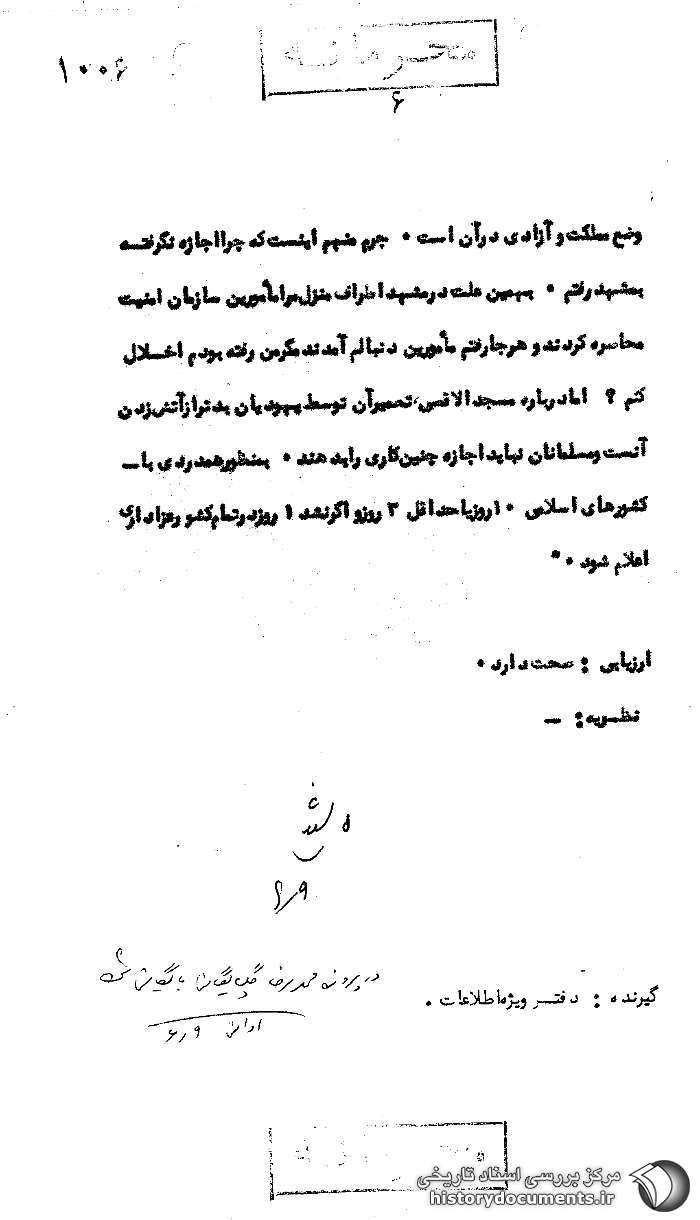 محرمانه
۱۰۰۶
۶
وضع مملکت و آزادی در آن است ۰ جرم مهم اینست که چرا اجازه نگرفته
بمشهد رفتم ۰ بهمین علت در مشهد اطراف منزل مرا مأمورین سازمان امنیت
محاصره کردند و هر جا رفتم مأمورین دنبالم آمدند مگر من رفته بودم اخلال
کنم ؟ اما درباره مسجد الاقصی، تعمیر آن توسط یهودیان بدتر از آتش زدن
آنست و مسلمانان نباید اجازه چنین کاری را بدهند ۰ بمنظور همدردی با ــ
کشورهای اسلامی ۱۰ روز یا حداقل ۳ روز و اگر نشد ۱ روز در تمام کشور عزاداری
اعلام شود ۰"
ارزیابی : صحت دارد ۰
نظریه : ــ
۶/۹
در پرونده محمدرضا گلپایگانی بایگانی شود
۶/۹
گیرنده : دفتر ویژه اطلاعات ۰
مرکز بررسی اسناد تاریخی
historydocuments.ir